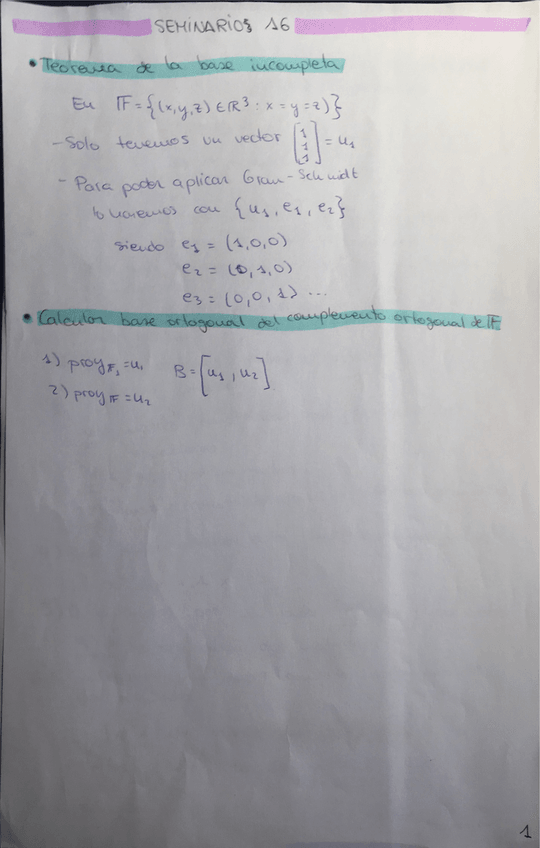 SEMINARIOS 16
• Teorema de la base incompleta
En F = {(x,y,z) ∈ R³ : x = y = z)}
- Solo tenemos un vector [1 1 1] = u₁
- Para poder aplicar Gram-Schmidt
lo haremos con {u₁, e₁, e₂}
siendo e₁ = (1,0,0)
e₂ = (0,1,0)
e₃ = (0,0,1) ...
• Calcular base ortogonal del complemento ortogonal de F
1) proy F₁ = u₁ B = [u₁, u₂]
2) proy F = u₂
1